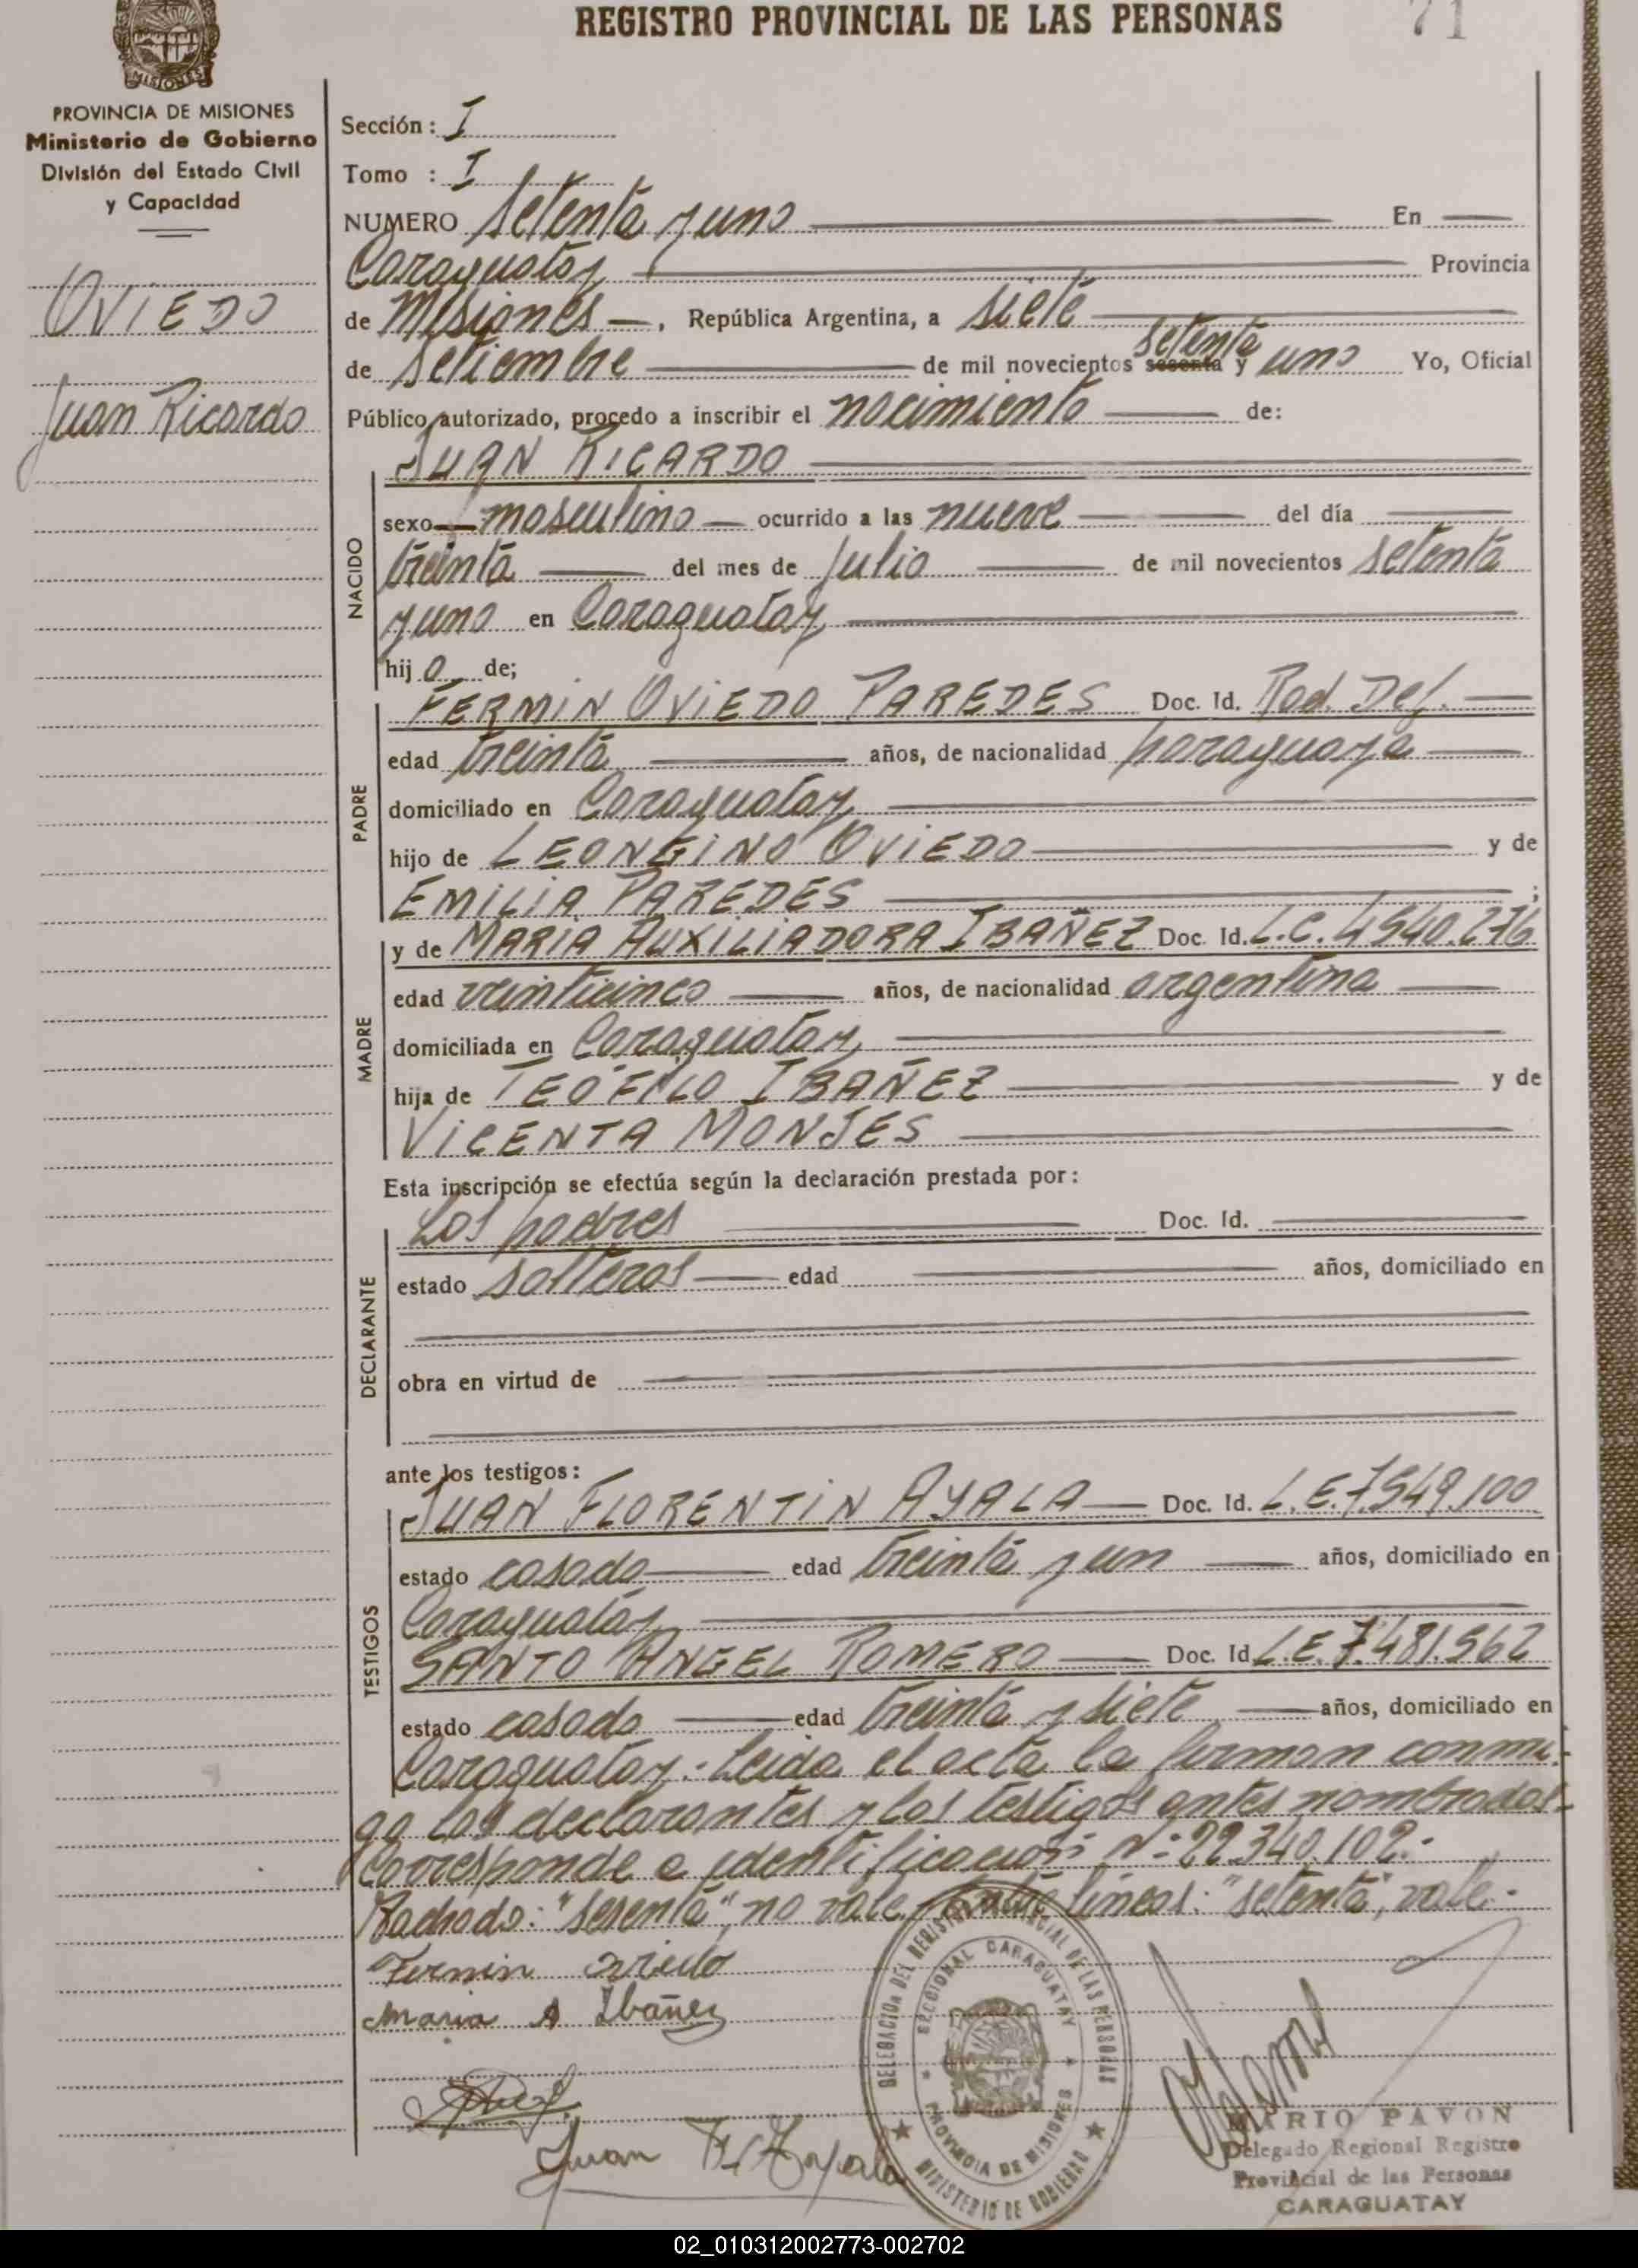 REGISTRO PROVINCIAL DE LAS PERSONAS 71
MISIONES
PROVINCIA DE MISIONES
Ministerio de Gobierno
División del Estado Civil
y Capacidad
OVIEDO
Juan Ricardo
Sección: I
Tomo : I
NUMERO setenta y uno En
Caraguatay Provincia
de Misiones, República Argentina, a siete
setenta
de setiembre de mil novecientos sesenta y uno Yo, Oficial
Público autorizado, procedo a inscribir el nacimiento de:
JUAN RICARDO
NACIDO
sexo masculino ocurrido a las nueve del día
treinta del mes de julio de mil novecientos setenta
y uno en Caraguatay
hijo de;
PADRE
FERMIN OVIEDO PAREDES Doc. Id. Rad. Def.
edad treinta años, de nacionalidad paraguaya
domiciliado en Caraguatay
hijo de LEONGINO OVIEDO y de
EMILIA PAREDES ;
MADRE
y de MARIA AUXILIADORA IBAÑEZ Doc. Id. L.C. 4.540.276
edad veinticinco años, de nacionalidad argentina
domiciliada en Caraguatay
hija de TEOFILO IBAÑEZ y de
VICENTA MONJES
Esta inscripción se efectúa según la declaración prestada por:
DECLARANTE
Los padres Doc. Id.
estado solteros edad años, domiciliado en
obra en virtud de
ante los testigos:
TESTIGOS
JUAN FLORENTIN AYALA Doc. Id. L.E. 7.549.100
estado casado edad treinta y un años, domiciliado en
Caraguatay
SANTO ANGEL ROMERO Doc. Id L.E. 7.481.562
estado casado edad treinta y siete años, domiciliado en
Caraguatay.- Leida el acta la firman conmi-
go los declarantes y los testigos antes nombrados.-
Corresponde a identificación: N.- 22.340.102.-
Radiado: "sesenta", no vale. Entre líneas: "setenta", vale.-
Fermin oviedo
Maria A Ibañez
Juan F. Ayala
DELEGACION DEL REGISTRO PROVINCIAL DE LAS PERSONAS
SECCIONAL CARAGUATAY
PROVINCIA DE MISIONES
MINISTERIO DE GOBIERNO
MARIO PAVON
Delegado Regional Registro
Provincial de las Personas
CARAGUATAY
02_010312002773-002702